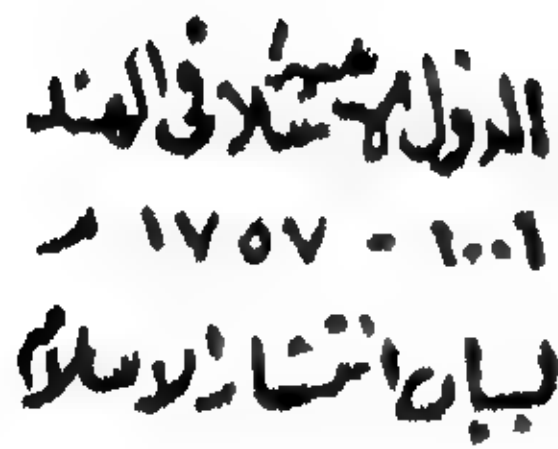 الدول الإسلامية في الهند
١٠٠١ - ١٧٥٧ م
لبيان انتشار الاسلام